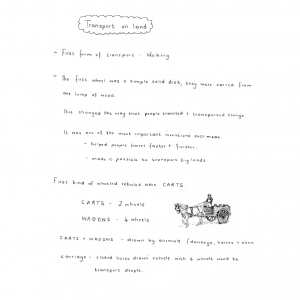 Transport on land
- First form of transport - Walking
- The first wheel was a simple solid disk, they were carved from
one lump of wood.
This changed the way that people travelled + transported things.
It was one of the most important inventions ever made.
- helped people travel faster + further.
- made it possible to transport big loads
First kind of wheeled vehicles were CARTS.
CARTS - 2 wheels
WAGONS - 4 wheels
CARTS + WAGONS - drawn by animals (donkeys, horses + oxen
Carriage - closed horse drawn vehicle with 4 wheels used to
transport people.